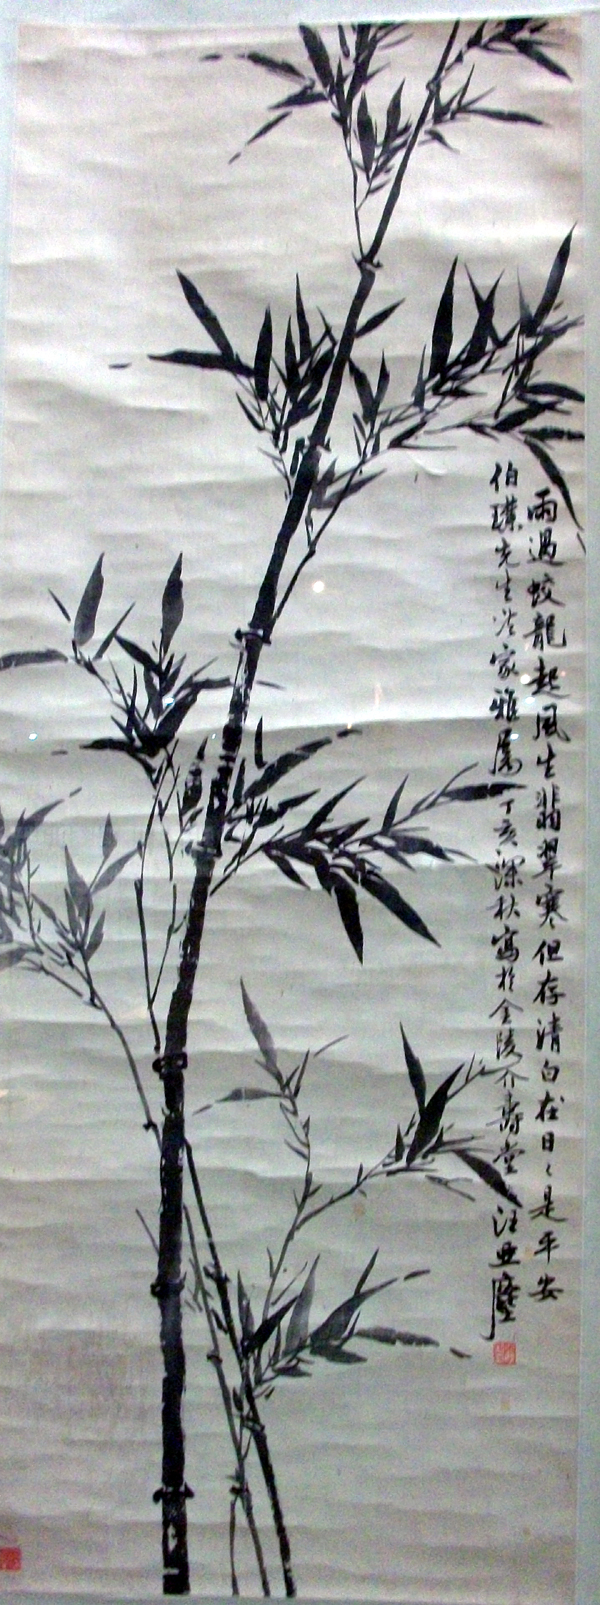 雨過蛟龍起風生翡翠寒但存清白在日〻是平安
伯璞先生方家雅屬丁亥深秋寫於金陵介壽堂汪亞塵